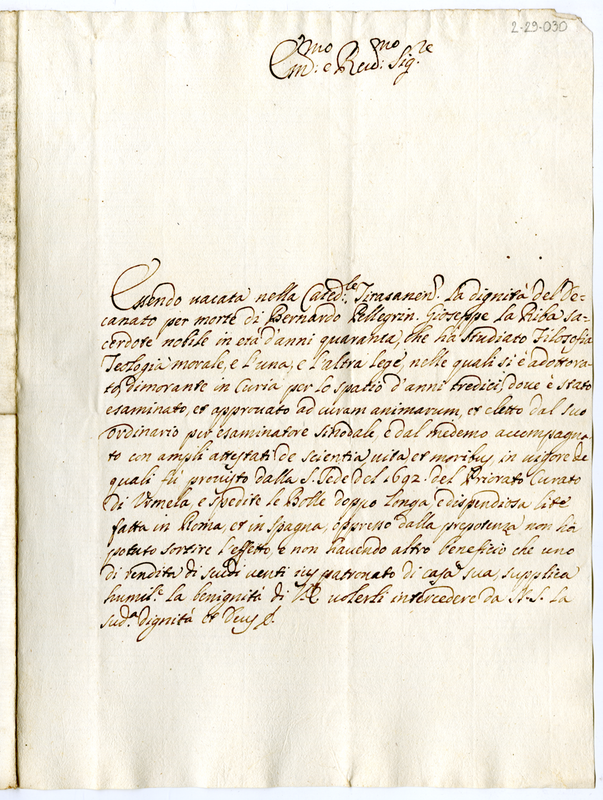 2-29-030
Em.mo e Reud.mo Sig.re
Essendo uacata nella Cated.le Tirasanen. La dignità del De-
canato per morte di Bernardo Pellegrin. Gioseppe La Riba sa-
cerdote nobile in età d'anni quaranta, che hà studiato Filosofia
Teologia morale, e l'una, e l'altra lege, nelle quali si è adottora-
to, dimorante in Curia per lo spatio d'anni tredici, doue è stato
esaminato, et approuato ad curam animarum, et eletto dal suo
ordinario per esaminatore sinodale, e dal medemo accompagna-
to con ampli attestati de scientia uita et moribus, in uigore de
quali fù prouisto dalla S. Sede del 1692. del Priorato Curato
di Vrmela, e spedite le Bolle doppo longa, e dispendiosa lite
fatta in Roma, et in Spagna, oppresso dalla prepotenza non hà
potuto sortire l'effetto, e non hauendo altro beneficio che uno
di rendita di scudi uenti ius patronato di casa sua, supplica
humil.e la benignità di V.E. uolerli intercedere da N. S. La
sud.a dignità et Deus &.